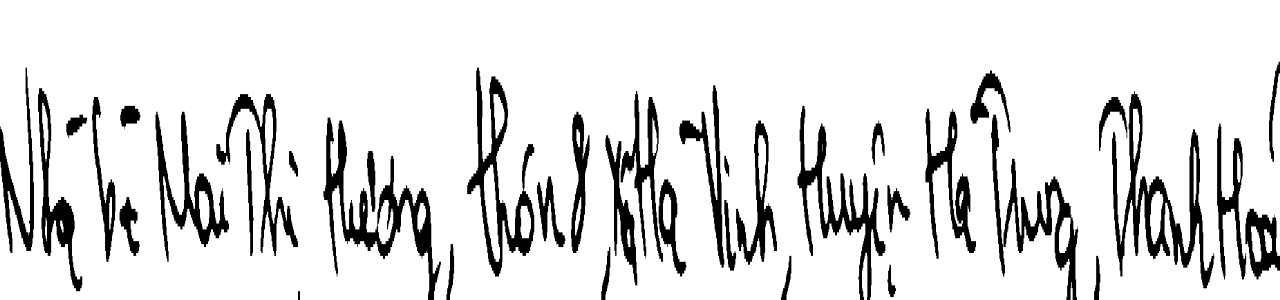 Nhà bà Mai Thị Hường, thôn 8, Xã Hà Vinh, Huyện Hà Trung, Thanh Hoá